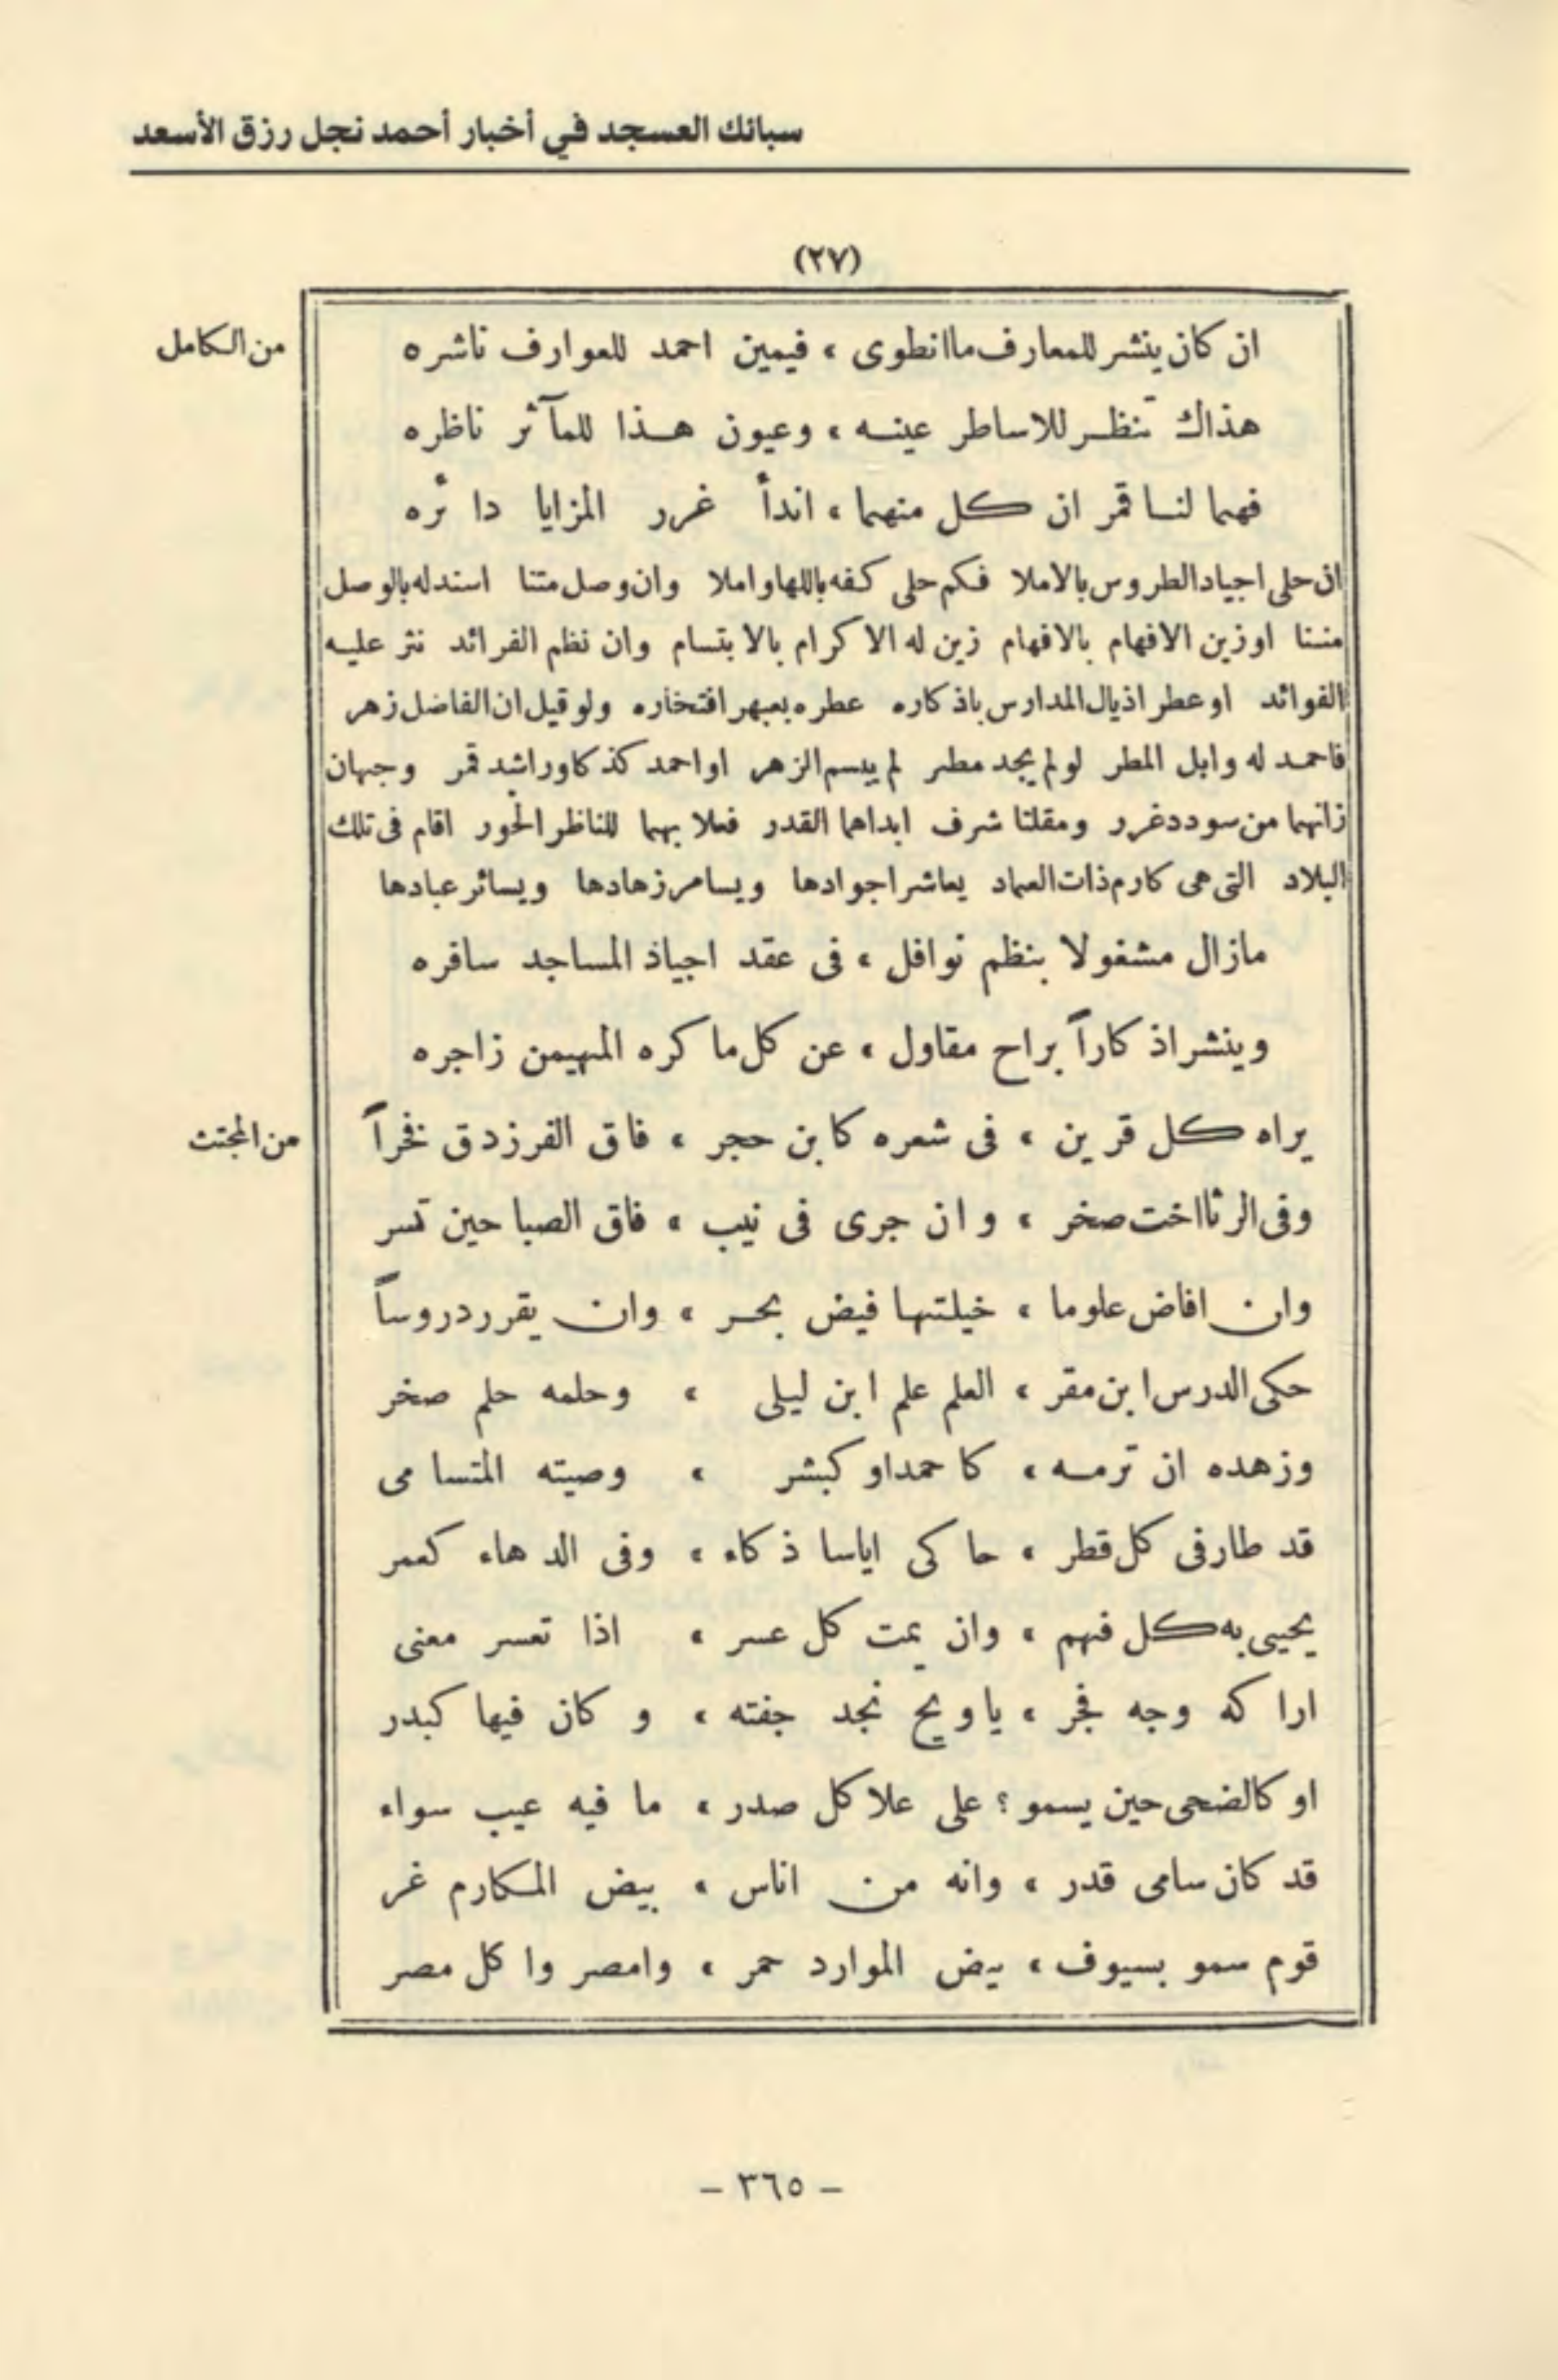 سبائك العسجد في أخبار أحمد نجل رزق الأسعد
(٢٧)
من الكامل
ان كان ينشر للمعارف ما انطوى ، فيمين احمد للعوارف ناشره
هذاك تنظر للاساطر عينه ، وعيون هذا للمآثر ناظره
فهما لنا قمر ان كل منهما ، اندأ غرر المزايا دائره
ان حلى اجياد الطروس بالاملا فكم حلى كفه باللها واملا وان وصل متنا اسند له بالوصل
مننا او زين الافهام بالافهام زين له الاكرام بالابتسام وان نظم الفرائد نثر عليه
الفوائد او عطر اذيال المدارس باذكاره عطره بعبهر افتخاره ولو قيل ان الفاضل زهر
فاحمد له وابل المطر لو لم يجد مطر لم يبسم الزهر او احمد كذكا وراشد قمر وجهان
زانهما من سودد غرر ومقلتا شرف ابداهما القدر فعلا بهما للناظر الحور اقام فى تلك
البلاد التى هى كارم ذات العماد يعاشر اجوادها ويسامر زهادها ويسائر عبادها
مازال مشغولا بنظم نوافل ، فى عقد اجياذ المساجد سافره
وينشر اذكاراً براح مقاول ، عن كل ما كره المهيمن زاجره
من المجتث
يراه كل قرين ، فى شعره كابن حجر ، فاق الفرزدق فخراً
وفى الرثا اخت صخر ، وان جرى فى نيب ، فاق الصبا حين تسر
وان افاض علوما ، خيلتها فيض بحر ، وان يقرر دروساً
حكى الدرس ابن مقر ، العلم علم ابن ليلى ، وحلمه حلم صخر
وزهده ان ترمه ، كاحمد او كبشر ، وصيته المتسامى
قد طار فى كل قطر ، حاكى اياسا ذكاء ، وفى الدهاء كعمر
يحيى به كل فهم ، وان يمت كل عسر ، اذا تعسر معنى
اراكه وجه فجر ، ياويح نجد جفته ، وكان فيها كبدر
او كالضحى حين يسمو ؟ على علا كل صدر ، ما فيه عيب سواء
قد كان سامى قدر ، وانه من اناس ، بيض المكارم غر
قوم سمو بسيوف ، بيض الموارد حمر ، وامصروا كل مصر
– ٣٦٥ –